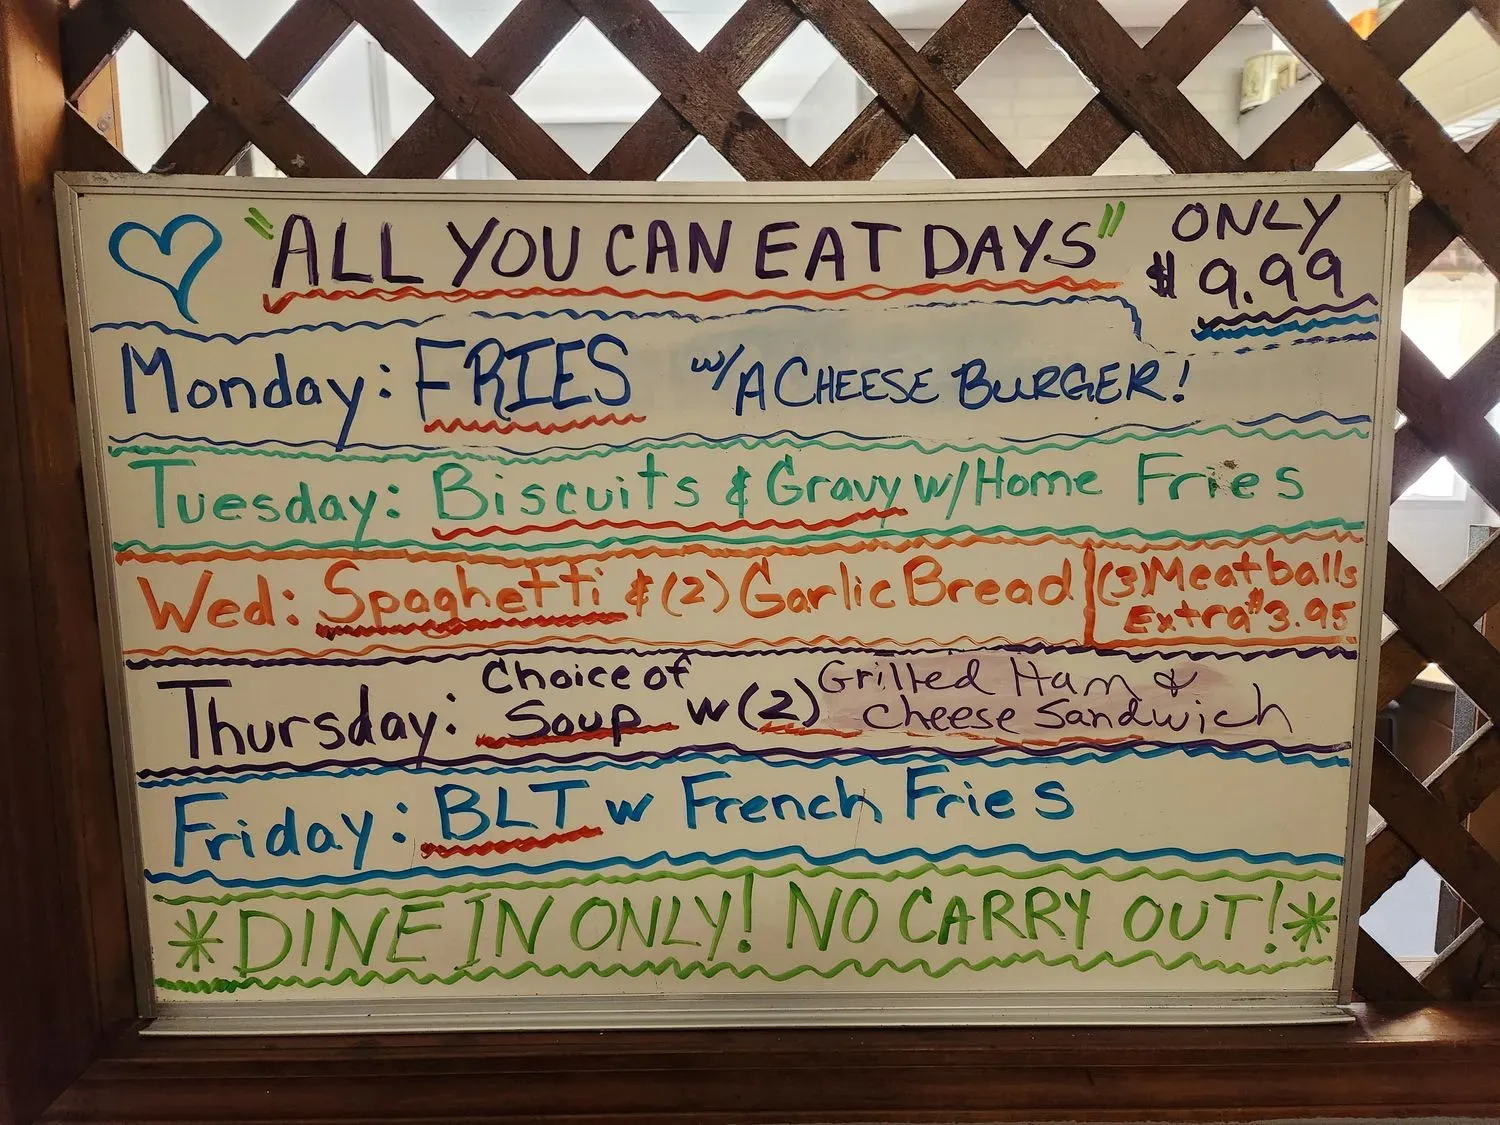 "ALL YOU CAN EAT DAYS" ONLY
$9.99
Monday: FRIES w/ A CHEESE BURGER!
Tuesday: Biscuits & Gravy w/ Home Fries
Wed: Spaghetti & (2) Garlic Bread (3) Meatballs
Extra $3.95
Thursday: Choice of
Soup w (2) Grilled Ham &
Cheese Sandwich
Friday: BLT w French Fries
*DINE IN ONLY! NO CARRY OUT!*